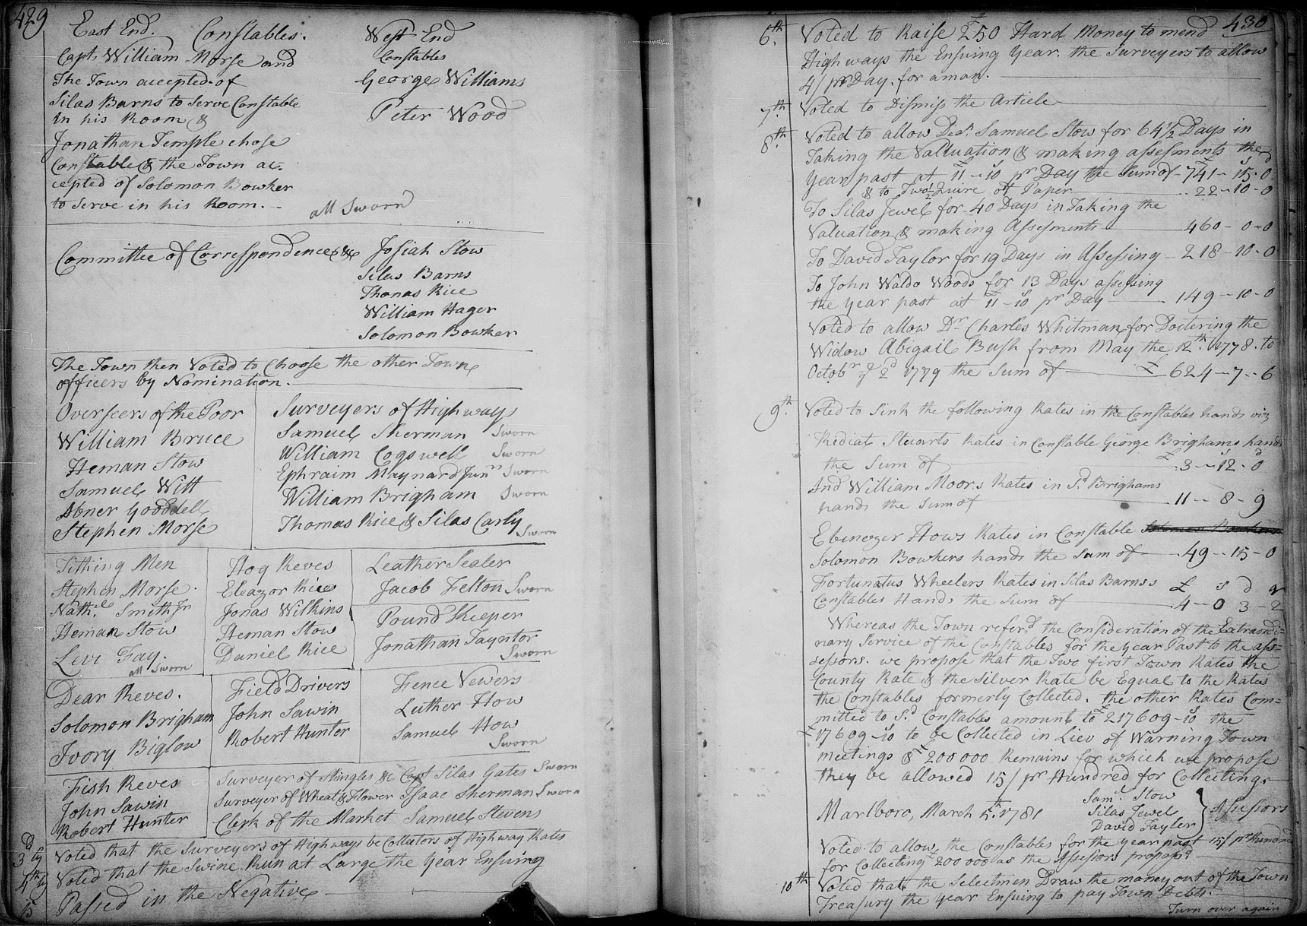 429
East End. Constables.
Capt. William Morse and
The Town accepted of
Silas Barns to Serve Constable
in his Room &
Jonathan Temple chose
Constable & the Town ac-
cepted of Solomon Bowker
to Serve in his Room.
all Sworn
West End
Constables
George Williams
Peter Wood
Committee of Correspondence &c
Josiah Stow
Silas Barns
Thomas Rice
William Hager
Solomon Bowker
The Town then Voted to Choose the other Town
officers by Nomination.
Overseers of the Poor
William Bruce
Heman Stow
Samuel Witt
Abner Gooddell
Stephen Morse
Surveyors of Highways
Samuel Sherman Sworn
William Cogswell Sworn
Ephraim Maynard Junr Sworn
William Brigham Sworn
Thomas Rice & Silas Carly Sworn
Tithing Men
Stephen Morse
Nathl. Smith Jr
Heman Stow
Levi Fay.
all Sworn
Hog Reves
Eleazor Rice
Jonas Wilkins
Heman Stow
Daniel Rice
Leather Sealer
Jacob Felton Sworn
Pound Keeper
Jonathan Tayntor
Sworn
Dear Reves.
Solomon Brigham
Ivory Biglow
Field Drivers
John Sawin
Robert Hunter
Fence Vewers
Luther How
Samuel How
Sworn
Fish Reves
John Sawin
Robert Hunter
Surveyor of Shingles &c Capt Silas Gates Sworn
Surveyor of Wheat & Flower Isaac Sherman Sworn
Clerk of the Market Samuel Stevens
3d ly Voted that the Surveyors of Highways be Collectors of Highway Rates
4th ly Voted that the Swine Run at Large the Year Ensuing
5 Passed in the Negative
430
6th. Voted to Raise £250 Hard Money to mend
Highways the Ensuing Year. the Surveyors to allow
4/ pr Day. for a man.
7th. Voted to Dismiss the Article
8th. Voted to allow Dea. Samuel Stow for 64½ Days in
Taking the Valuation & making assessments the
Year past at £11-10s pr Day the Sum of 741-15-0
& to Two Quire of Paper 22-10-0
To Silas Jewel for 40 Days in Taking the
Valuation & making Assessments 460-0-0
To David Taylor for 19 Days in Assessing 218-10-0
To John Waldo Woods for 13 Days assessing
the year past at £11-10s pr Day 149-10-0
Voted to allow Dr Charles Whitman for Doctering the
Widow Abigail Bush from May the 12th. 1778. to
Octobr ye 2d 1779 the Sum of £ 624-7-6
9th. Voted to Sink the following Rates in the Constables hands viz
Rediat Stewarts Rates in Constable George Brighams hands
the Sum of 3-12-0
And William Moors Rates in Sd. Brighams
hands the Sum of 11-8-9
Ebenezer Hows Rates in Constable
Solomon Bowkers hands the Sum of 49-15-0
Fortunatus Wheelers Rates in Silas Barnss £ s d q
Constables Hands the Sum of 4-0 3-2
Whereas the Town referd. the Consideration of the Extraordi-
nary Service of the Constables for the year Past to the ass-
sessors. we propose that the Two first Town Rates the
County Rate & the Silver Rate be Equal to the Rates
the Constables formerly Collected. the other Rates Com-
mitted to Sd. Constables amount to £217609-10 the
£17609-10 to be Collected in Liev of Warning Town
meetings & £200000 Remains for which we propose
they be allowed 15/ pr Hundred for Collecting.
Marlboro, March 5th. 1781
Saml. Stow
Silas Jewel
David Tayler
Assessors
Voted to allow the Constables for the year past 15/ pr Hundred
for Collecting £200000 as the Assessors propose
10th Voted that the Selectmen Draw the money out of the Town
Treasury the year Ensuing to pay Town Debts.
Turn over again